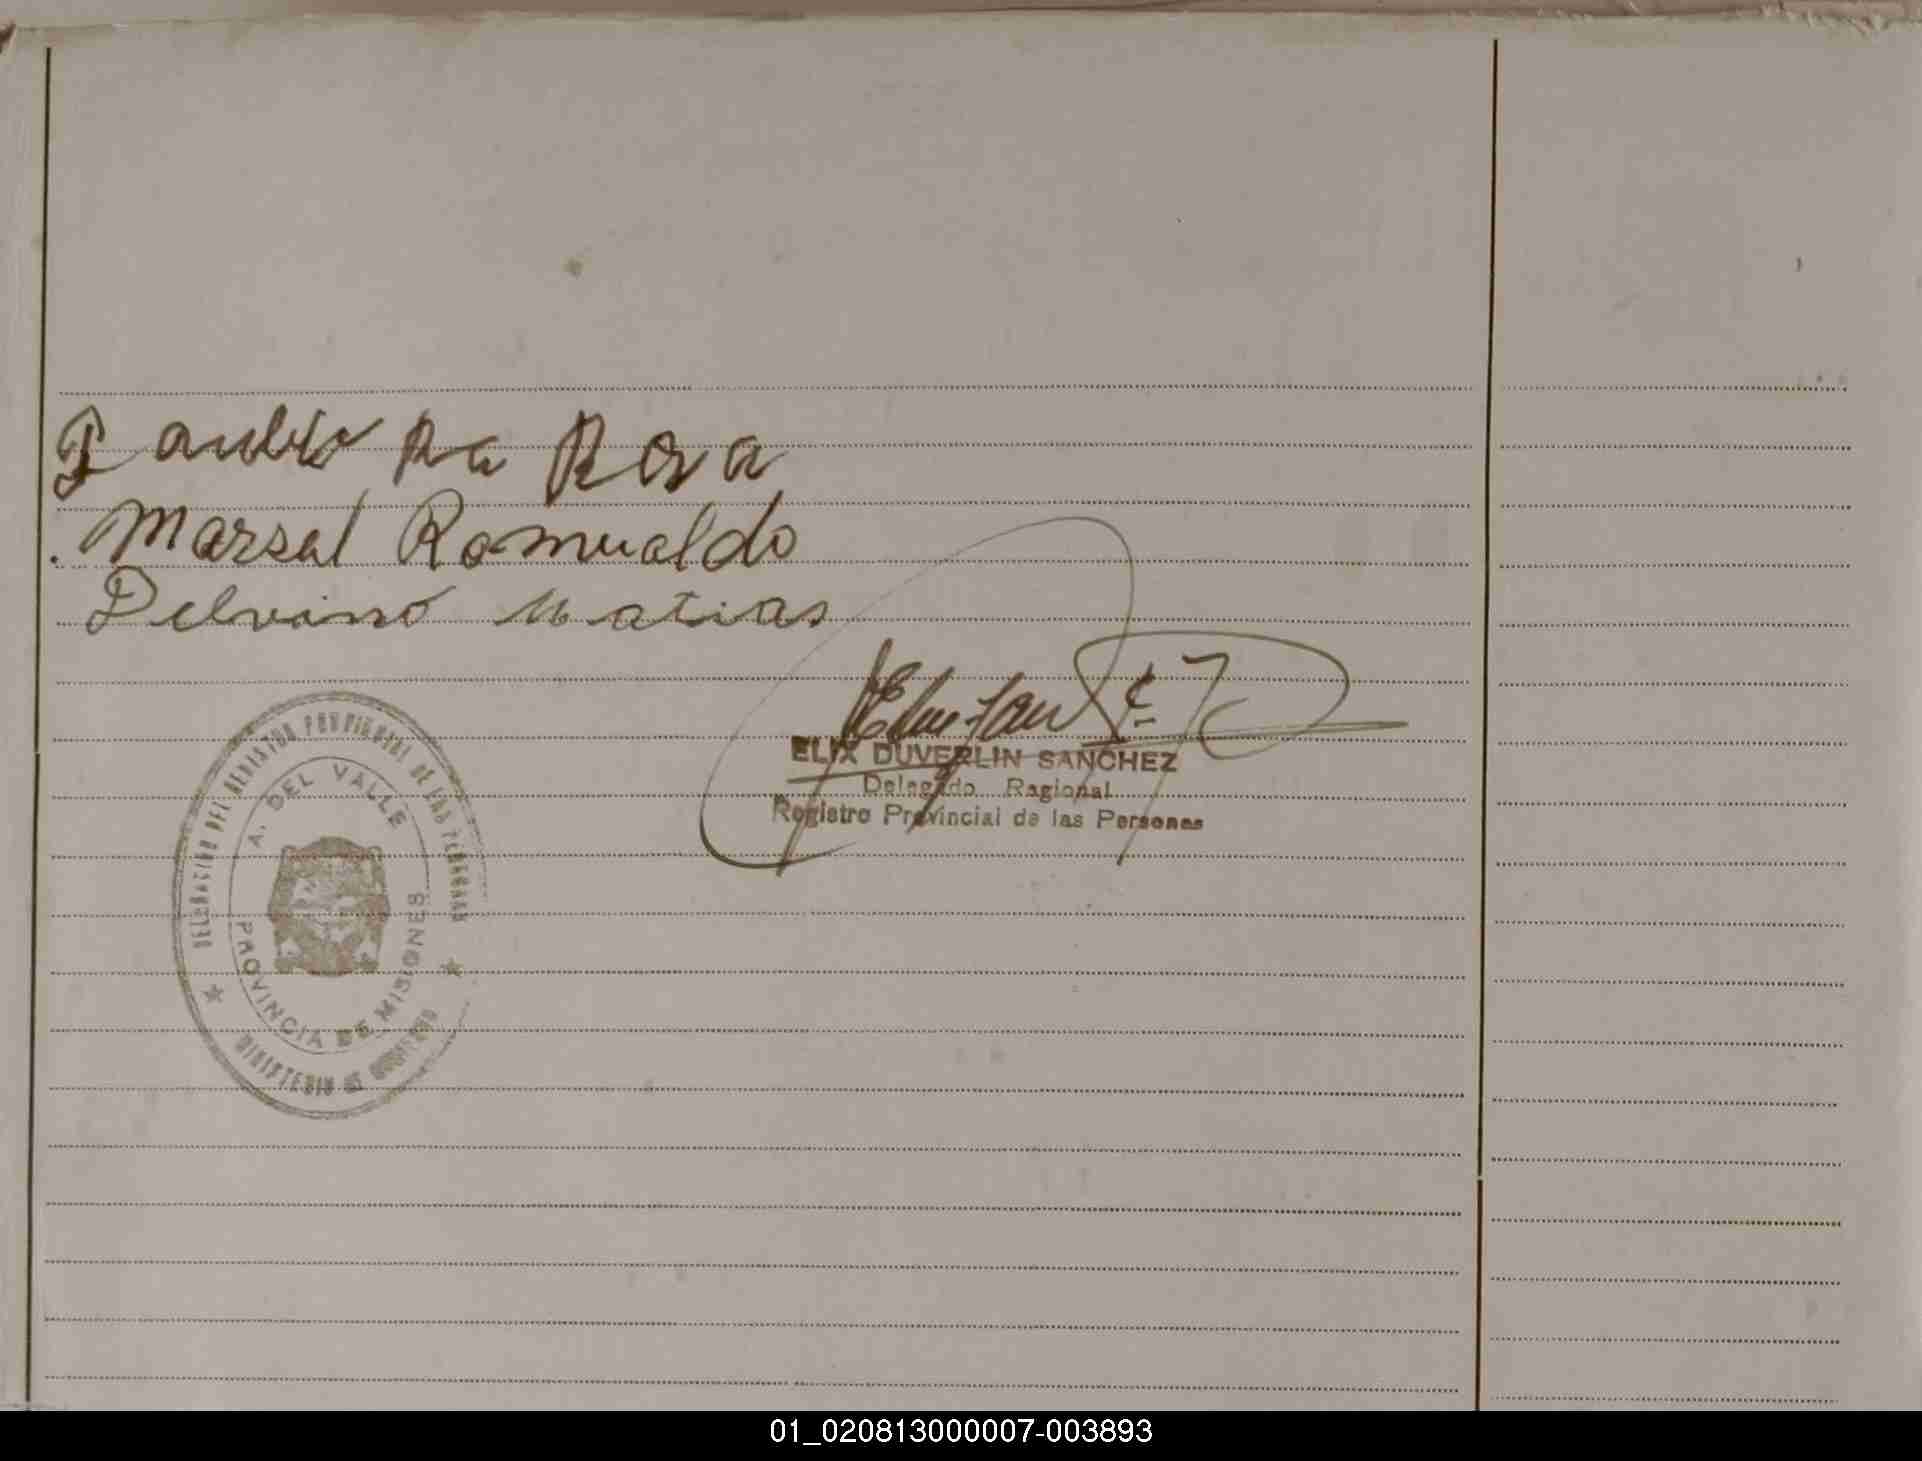 Da Rosa
Marsal Romualdo
Delvino Matias
ELIX DUVERLIN SANCHEZ
Delegado Regional
Registro Provincial de las Personas
DELEGACION DEL REGISTRO PROVINCIAL DE LAS PERSONAS
A. DEL VALLE
PROVINCIA DE MISIONES
MINISTERIO DE GOBIERNO
01_020813000007-003893